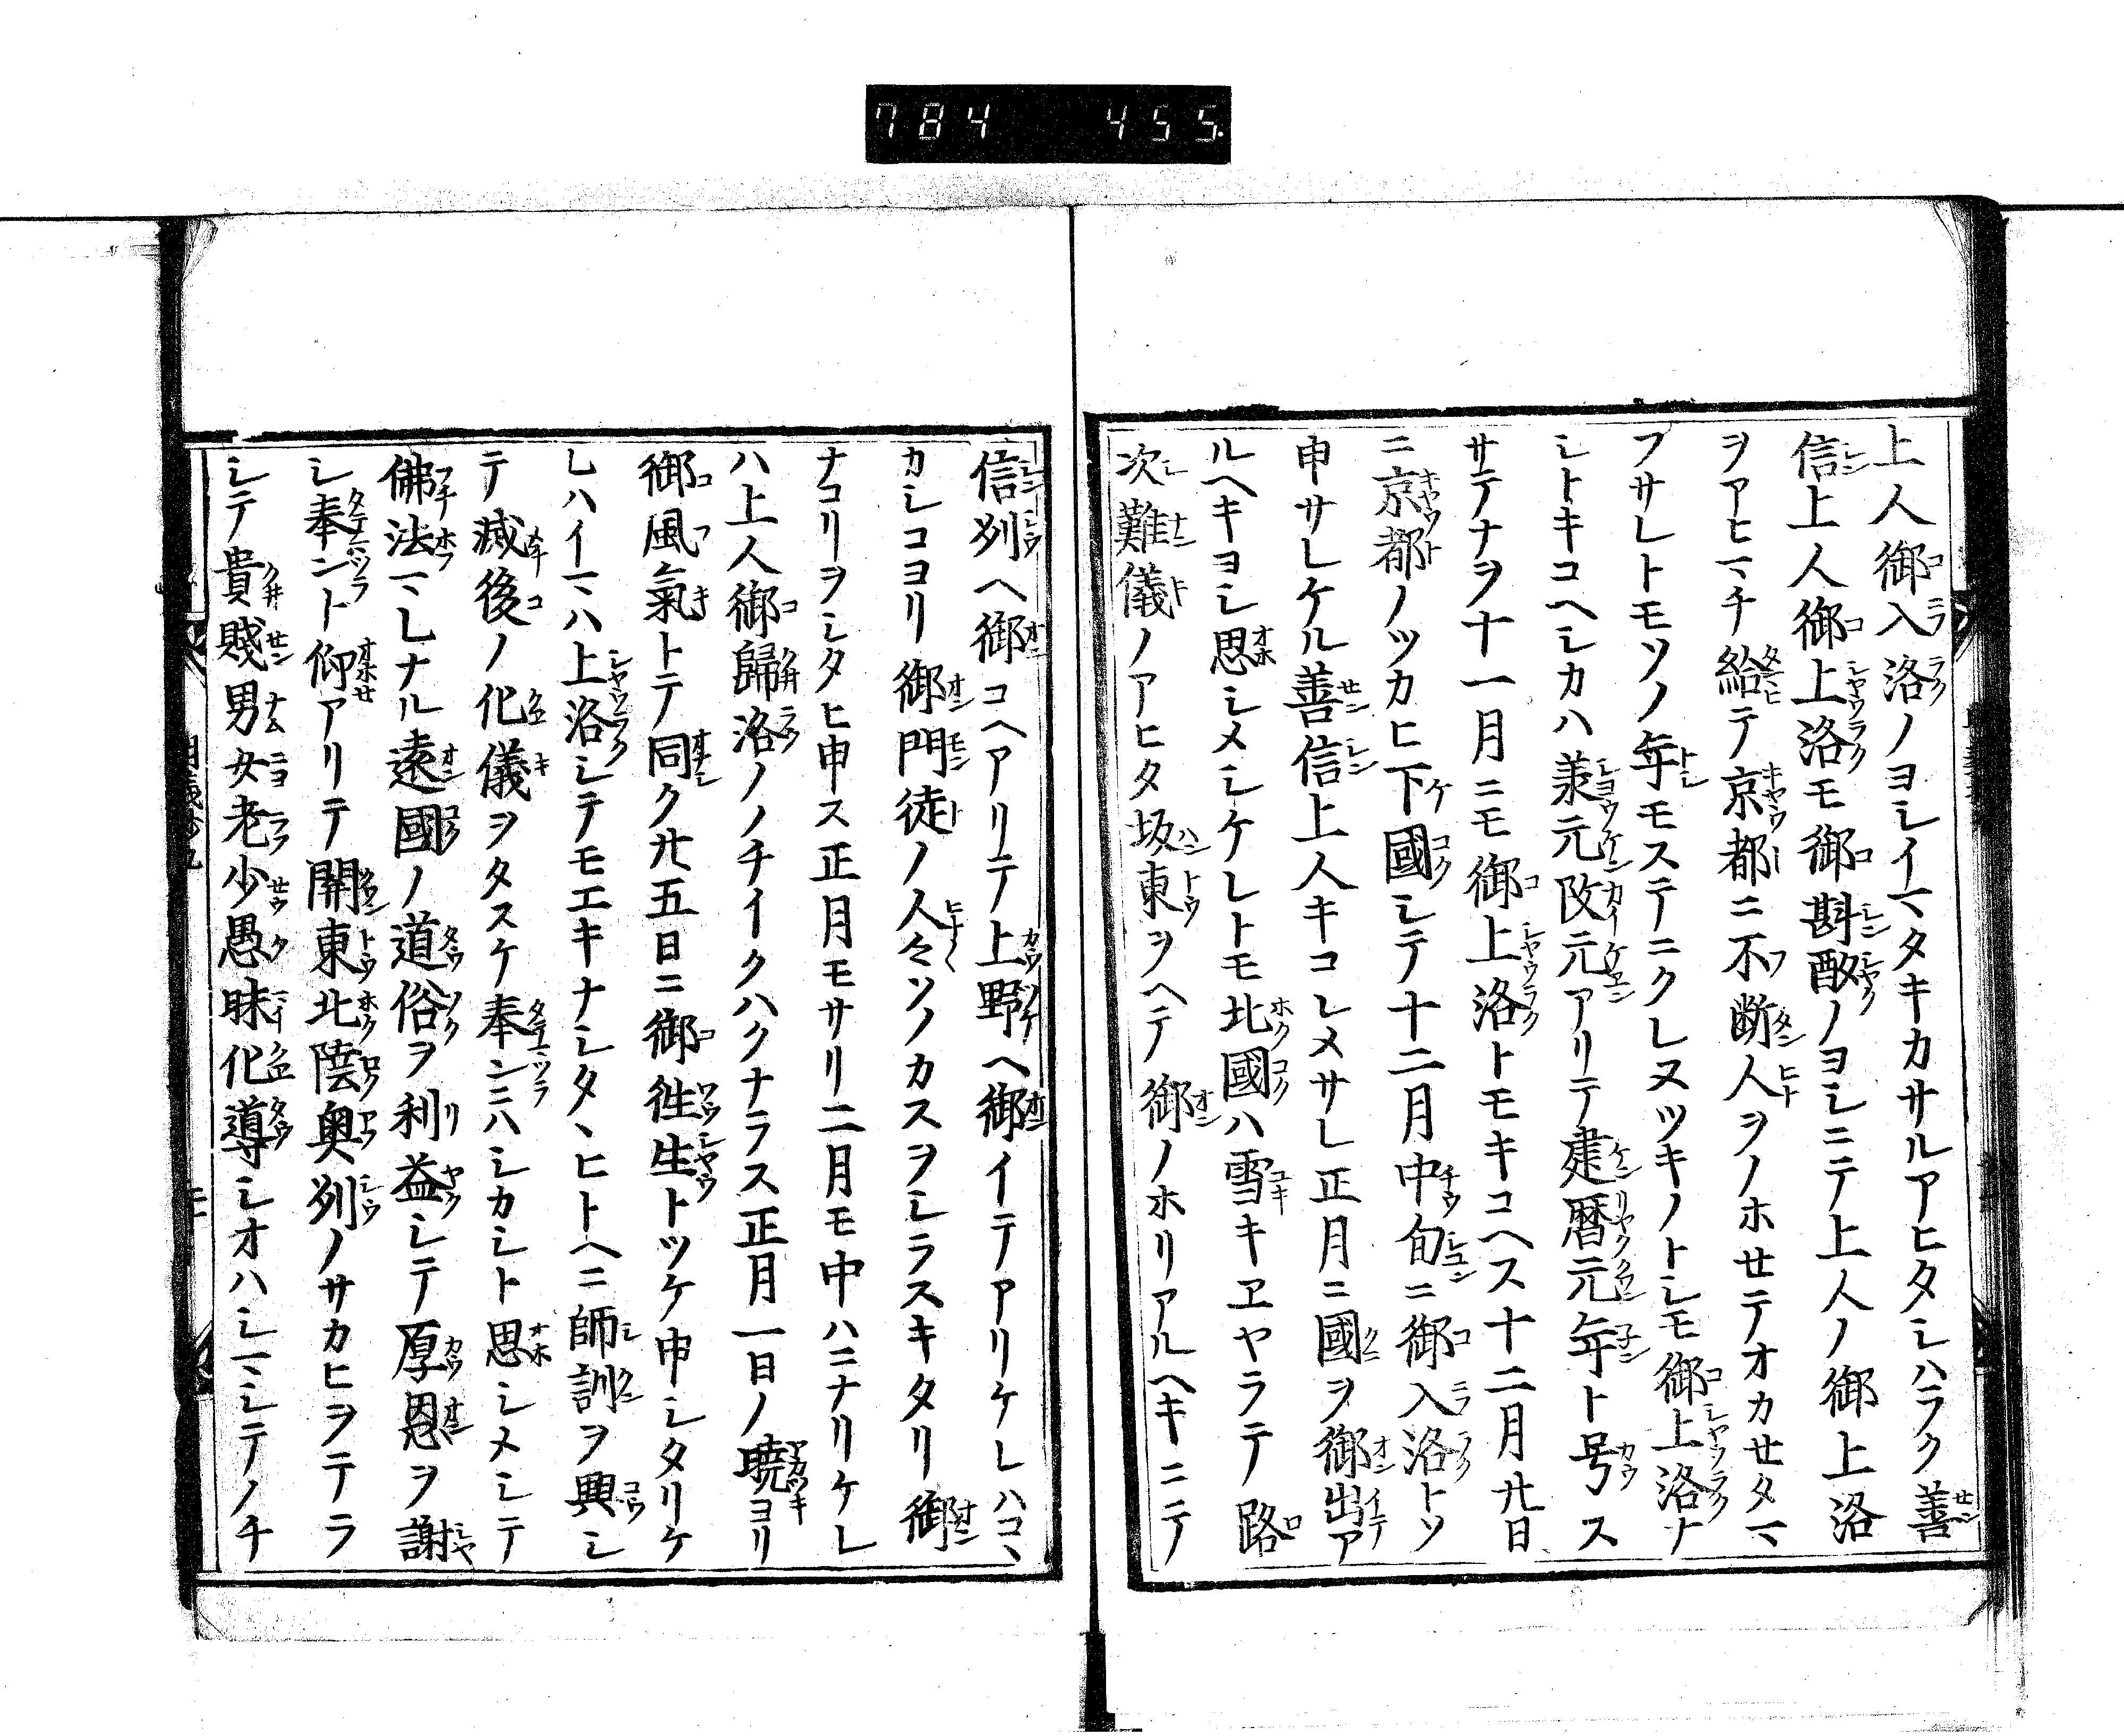 784 455.
上人御入洛ノヨシイマタキカサルアヒタシハラク善
信上人御上洛モ御斟酌ノヨシニテ上人ノ御上洛
ヲアヒマチ給テ京都ニ不断人ヲノホセテオカセタマ
フサレトモソノ年モステニクレヌツキノトシモ御上洛ナ
シトキコヘシカハ羕元改元アリテ建暦元年ト号ス
サテナヲ十一月ニモ御上洛トモキコヘス十二月廿日
ニ京都ノツカヒ下國シテ十二月中旬ニ御入洛トソ
申サレケル善信上人キコシメサレ正月ニ國ヲ御出ア
ルヘキヨシ思シメシケレトモ北國ハ雪キヱヤラテ路
次難儀ノアヒタ坂東ヲヘテ御ノホリアルヘキニテ
信刕ヘ御コヘアリテ上野ヘ御イテアリケレハコヽ
カシコヨリ御門徒ノ人々ソノカスヲシラスキタリ御
ナコリヲシタヒ申ス正月モサリ二月モ中ハニナリケレ
ハ上人御歸洛ノノチイクハクナラス正月一日ノ曉ヨリ
御風氣トテ同ク廿五日ニ御徃生トツケ申シタリケ
レハイマハ上洛シテモエキナシタヽヒトヘニ師訓ヲ興シ
テ滅後ノ化儀ヲタスケ奉ンニハシカシト思シメシテ
佛法マレナル遠國ノ道俗ヲ利益シテ厚恩ヲ謝
シ奉ント仰アリテ關東北陸奥刕ノサカヒヲテラ
シテ貴賤男女老少愚昧化導シオハシマシテノチ